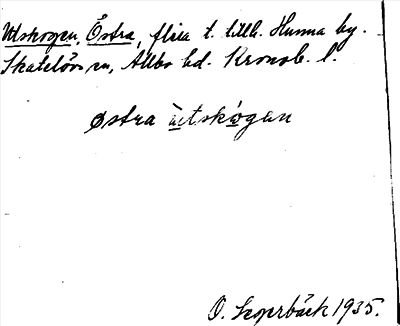 Utskogen, Östra, flera t. tillh. Hunna by.
Skatelövs sn, Allbo hd. Kronob. l.
østra ùtskògan
O. Sagerbäck 1935.